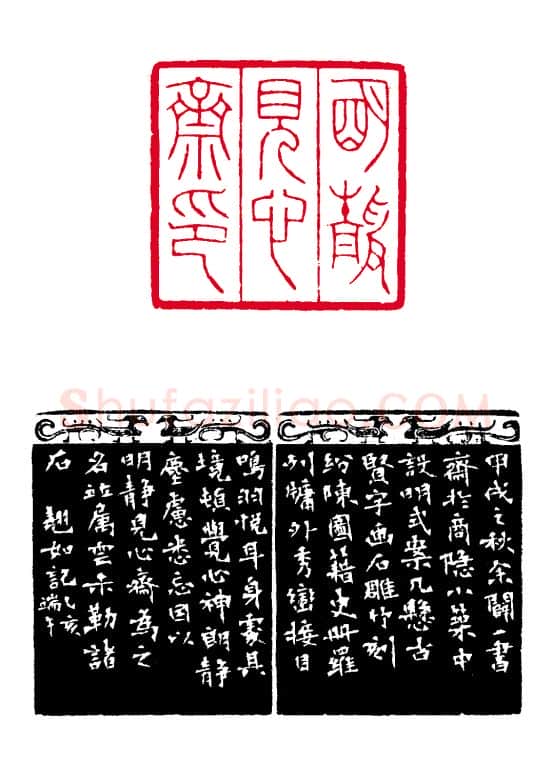 明靜
見心
齋印
Shufaziliao.COM
甲戌之秋余闢一書
齋於商隐小築中
設明式案几懸古
賢字画石雕竹刻
紛陳圖籍史册羅
列牗外秀巒接目
鳴羽悦耳身處其
境頓覺心神朗静
塵慮悉忘因以
明静見心齋為之
名並属雲勒諸
石
如記乙亥
端午